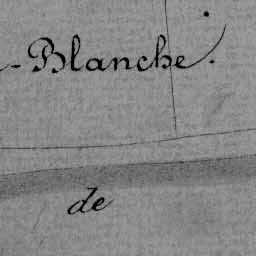 -Blanche.
de